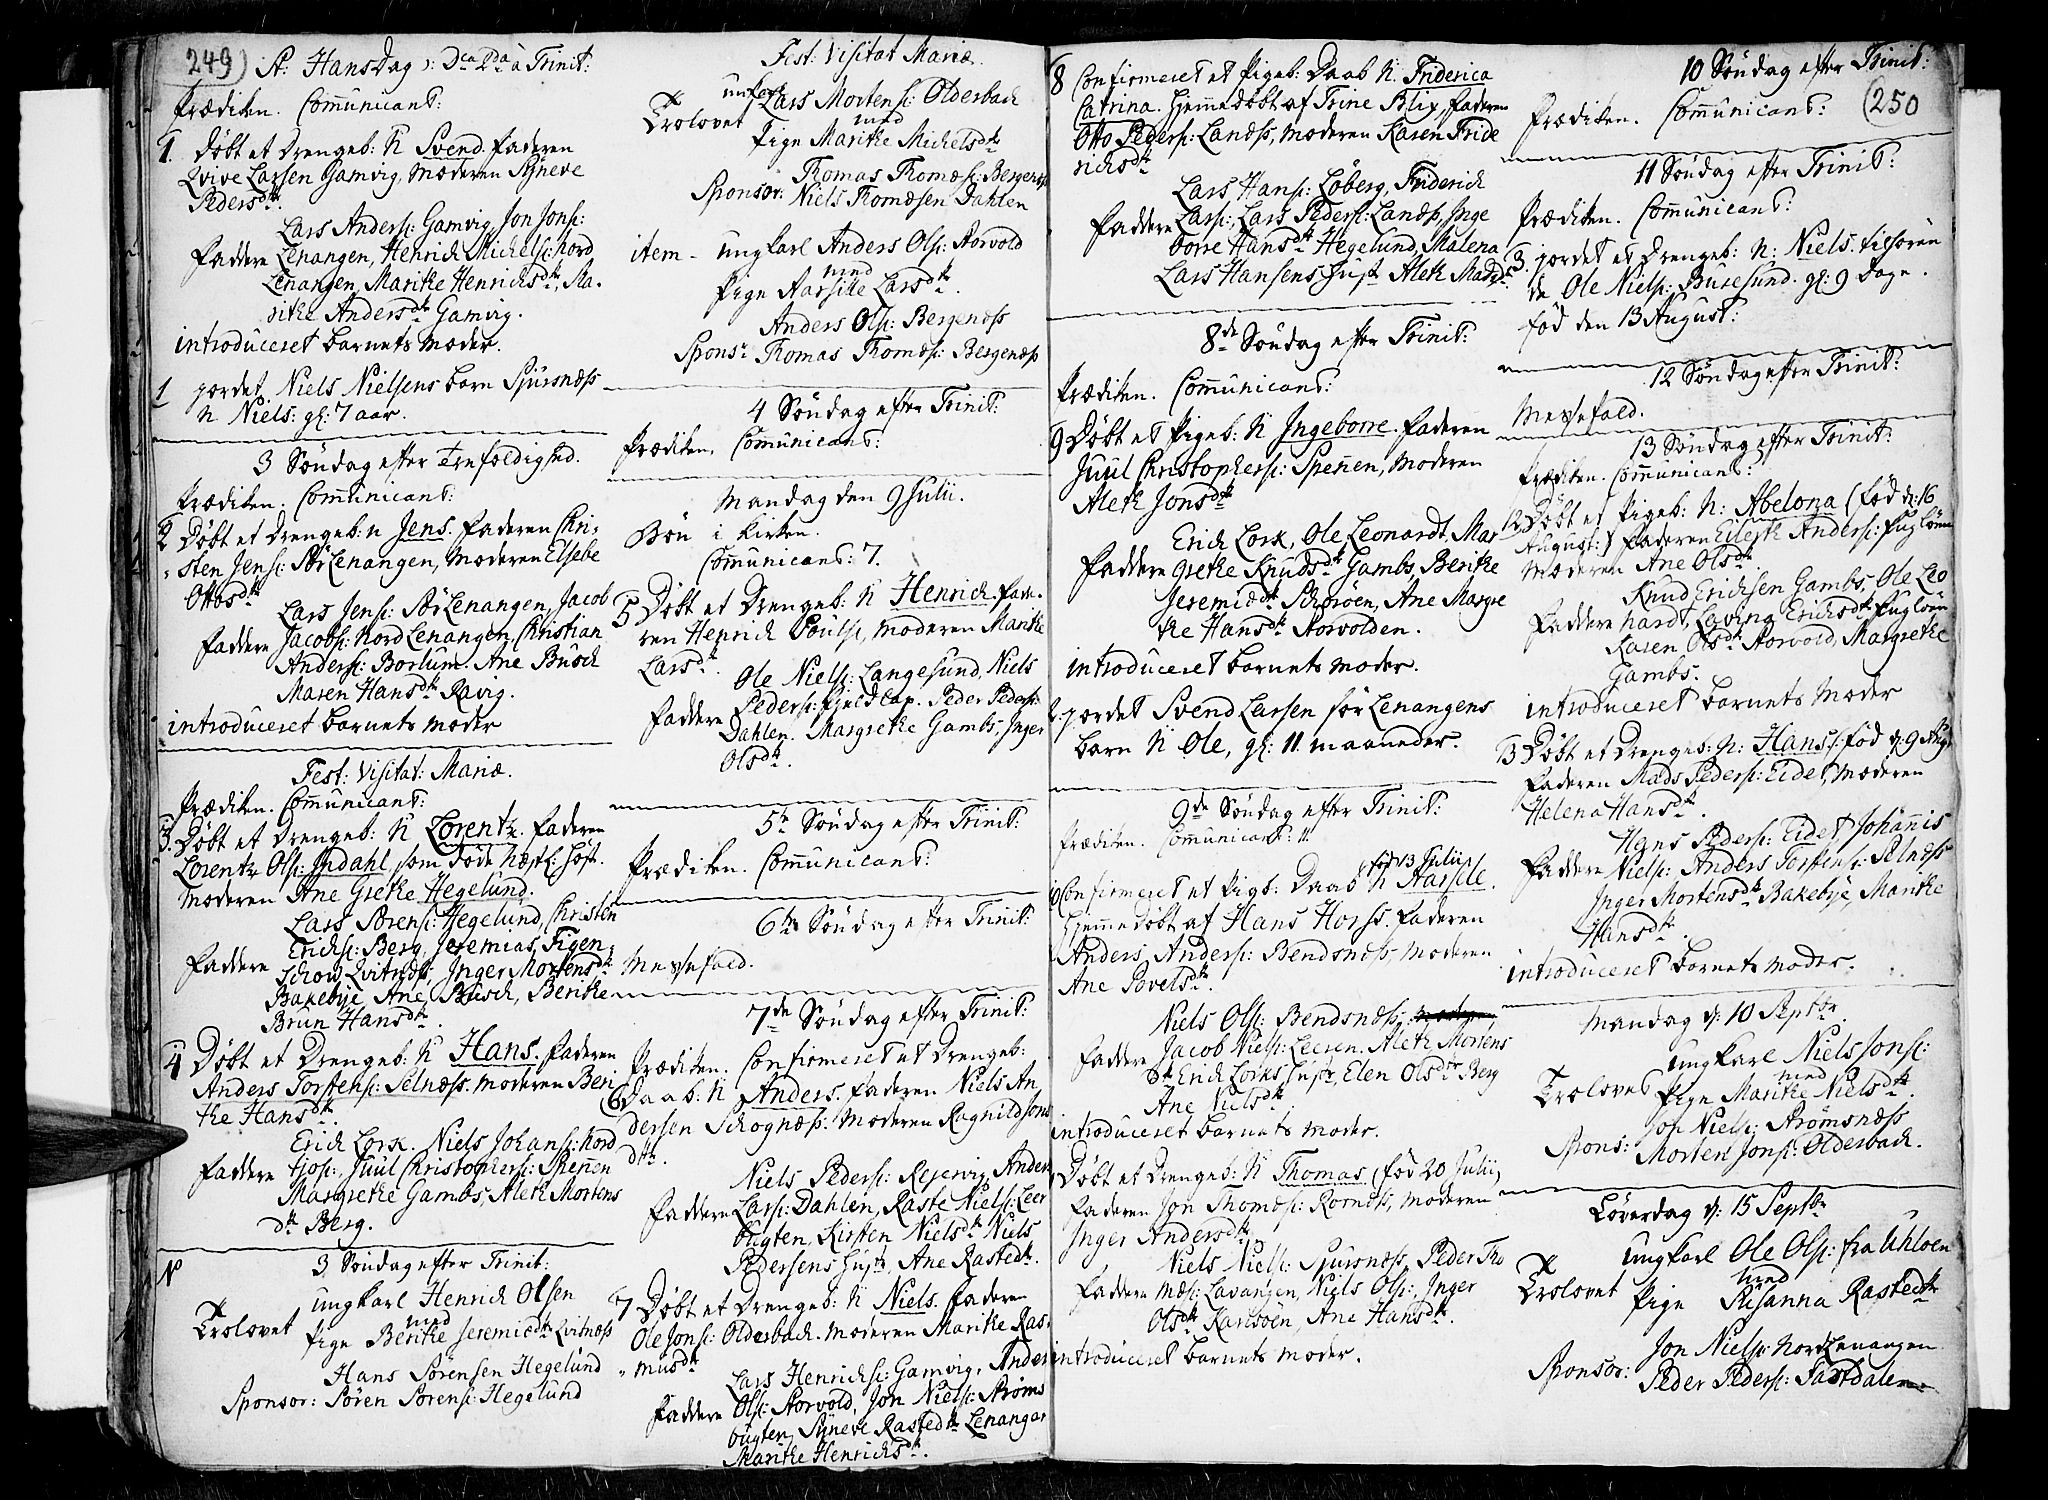 249)
St: Hans Dag ɔ: Dca 2da à Trinit:
Prædiken. Communicant:
1. Døbt et Drengeb: N Svend. Faderen
Qvive Larsen Gamvig, Moderen Syneve
Pedersdtr
Lars Anders: Gamvig, Jon Jons:
Faddere Lenangen, Henrich Michels: Nord
Lenangen, Marithe Henrichsdtr, Ma-
rithe Andersdtr Gamvig.
introduceret barnets Moder.
1 jordet Niels Nielsens barn Spursnæss
N Niels: gl: 7 aar.
3 Søndag efter Trefoldighed.
Prædiken. Communicant:
2 Døbt et Drengeb: N Jens. Faderen Chri-
sten Jens: SørLenangen, Moderen Elsebe
Ottosdtr
Lars Jens: SørLenangen, Jacob
Faddere Jacobs: Nord Lenangen, Christian
Anders: Borlum. Ane Busch
Maren Hansdtr Ravig.
introduceret barnets Moder
Fest: Visitat: Mariæ.
Prædiken. Communicant:
3. Døbt et Drengeb: N Lorentz. Faderen
Lorentz Ols: Indahl som døde næstl: Høst.
Moderen Ane Grethe Hegelund.
Lars Sørens: Hegelund, Christen
Faddere Erichs: Berg, Jeremias Figen-
schow Qvitnæs, Inger Mortensdtr
Bakebye, Ane Busch, Berithe
Brun Hansdtr.
4 Døbt et Drengeb: N Hans. Faderen
Anders Torstens: Selnæss. Moderen Beri
the Hansdtr.
Erich Lorx. Niels Johans: Nord
Faddere fjos: Juul Christophers: Spenen
Margrethe Gambs, Aleth Mortens
dtr Berg.
N 3 Søndag efter Trinit:
Ungkarl Henrich Olsen
Trolovet med
Pige Berithe Jeremiædtr Qvitnæss
Hans Sørensen Hegelund
Sponsor: Sören Sörens: Hegelund
Fest: Visitat Mariæ.
Ungkarl Lars Mortens: Olderbach
Trolovet med
Pige Marithe Michelsdtr
Thomas Thomæs: Bergenæs
Sponsor: Niels Thomæsen Dahlen
item - ungkarl Anders Ols: Storvold
med
Pige Marsille Larsdtr.
Anders Ols: Bergenæss
Sponsr Thomas Thomæs: Bergenæss
4 Søndag efter Trinit:
Prædiken. Communicant:
Mandag den 9 Julii.
Bøn i Kirken.
Communicant: 7.
5 Døbt et Drengeb: N Henrich. Fade-
ren Henrich Pouls, Moderen Marithe
Larsdtr.
Ole Niels: Langesund, Niels
Peders: Fjeld Lap. Peder Peders:
Faddere Dahlen. Margrethe Gambs, Inger
Olsdtr.
5te Søndag efter Trinit:
Prædiken. Communicant:
6te Søndag efter Trinit:
Messefald.
7de Søndag efter Trinit:
Prædiken. Confirmeret et Drengeb:
6 Daab: N Anders. Faderen Niels An-
dersen Schognæss: Moderen Ragnild Jons
dtr.
Niels Peders: Rejervig, Anders
Faddere Lars: Dahlen, Raste Niels: Leer
bugten, Kirsten Nielsdtr Niels
Pedersens Hustr, Ane Rastedtr.
7 Døbt et Drengeb: N Niels. Faderen
Ole Jons: Olderbach. Moderen Marithe Ras-
musdtr
Lars Henrichs: Gamvig, Anders
Faddere Ols: Storvold, Jon Niels: Strøms
bugten, Syneve Rastedtr Lenangen
Marithe Henrichsdtr.
8 Confirmeret et Pigeb: Daab N. Friderica
Catrina. Hjemmedøbt af Trine Blix, Faderen
Otto Peders: Landss, Moderen Karen Fride
richsdtr
Lars Hans: Løberg, Friderich
Faddere Lars: Lars Peders: Landss, Inge
borre Hansdtr Hegelund, Malena
Lars Hansens Hustr Aleth Madsdtr.
8de Søndag efter Trinit:
Prædiken. Communicant:
9 Døbt et Pigeb: N Ingeborre. Faderen
Juul Christophers: Spenen, Moderen
Aleth Jonsdtr
Erich Lorx, Ole Leonardt, Mar
Faddere grethe Knudsdtr Gambs, Berithe
Jeremiædtr Schorøen, Ane Margre
the Hansdtr Storvolden.
introduceret barnets Moder.
2. jordet Svend Larsen Sør Lenangens
barn N Ole, gl: 11 maaneder.
9de Søndag efter Trinit:
Prædiken. Communicant: 11
født 13 Julii
10 Confirmeret et Pigb: Daab N Marsele.
Hjemmedøbt af Hans Horss. Faderen
Anders Anders: Bendsnæss, Moderen
Ane Povelsdtr.
Niels Ols: Bendsnæss,
Faddere Jacob Niels: Leeren. Aleth Mortens
dtr Erich Lorks Hustr, Elen Olsdtr Berg
Ane Nielsdtr.
introduceret barnets Moder.
Døbt et Drengeb: N Thomas (fød 20 Julii)
Faderen Jon Thomæs: Rornæss, Moderen
Inger Andersdtr.
Niels Niels: Spursnæss, Peder Tho
Faddere mæs: Lavangen, Niels Ols:, Inger
Olsdtr Karlsøen, Ane Hansdtr.
introduceret barnets Moder.
10 Søndag efter Trinit:
(250
Prædiken. Communicant:
11 Søndag efter Trinit:
Prædiken. Communicant:
3. jordet et Drengeb: N: Niels.
Ole Niels: Buresund. gl: 9 Dage.
fød den 13 August:
12 Søndag efter Trinit:
Messefald.
13 Søndag efter Trinit:
Prædiken. Communicant:
12 Døbt et Pigeb: N: Abelona (fød d: 16
August:) Faderen Eilerth Anders: Fugløen
Moderen Ane Olsdtr.
Knud Erichsen Gambs, Ole Leo
Faddere nardt, Lavina Erichsdtr Fugløen
Karen Olsdtr Storvold, Margrethe
Gambs.
introduceret barnets Moder
13 Døbt et Drengeb: N: Hans (fød d: 9 Aug:
Faderen Mads Peders: Eidet, Moderen
Helena Hansdtr.
Hans Peders: Eidet Johannis
Faddere Niels: Anders Torstens: Selnæss
Inger Mortensdtr Bakebye, Marithe
Hansdtr.
introduceret barnets Moder.
Mandag d: 10 Septbr.
Ungkarl Niels Jons:
Trolovet med
Pige Marithe Nielsdtr.
Jon Niels: Strømsnæss
Spons: Morten Jons: Olderbach.
Løverdag d: 15 Septbr
Ungkarl Ole Ols: fra Uhløen
Trolovet med
Pige Susanna Rastedtr
Jon Niels: NordLenangen
Sponsor: Peder Peders: Sartdalen